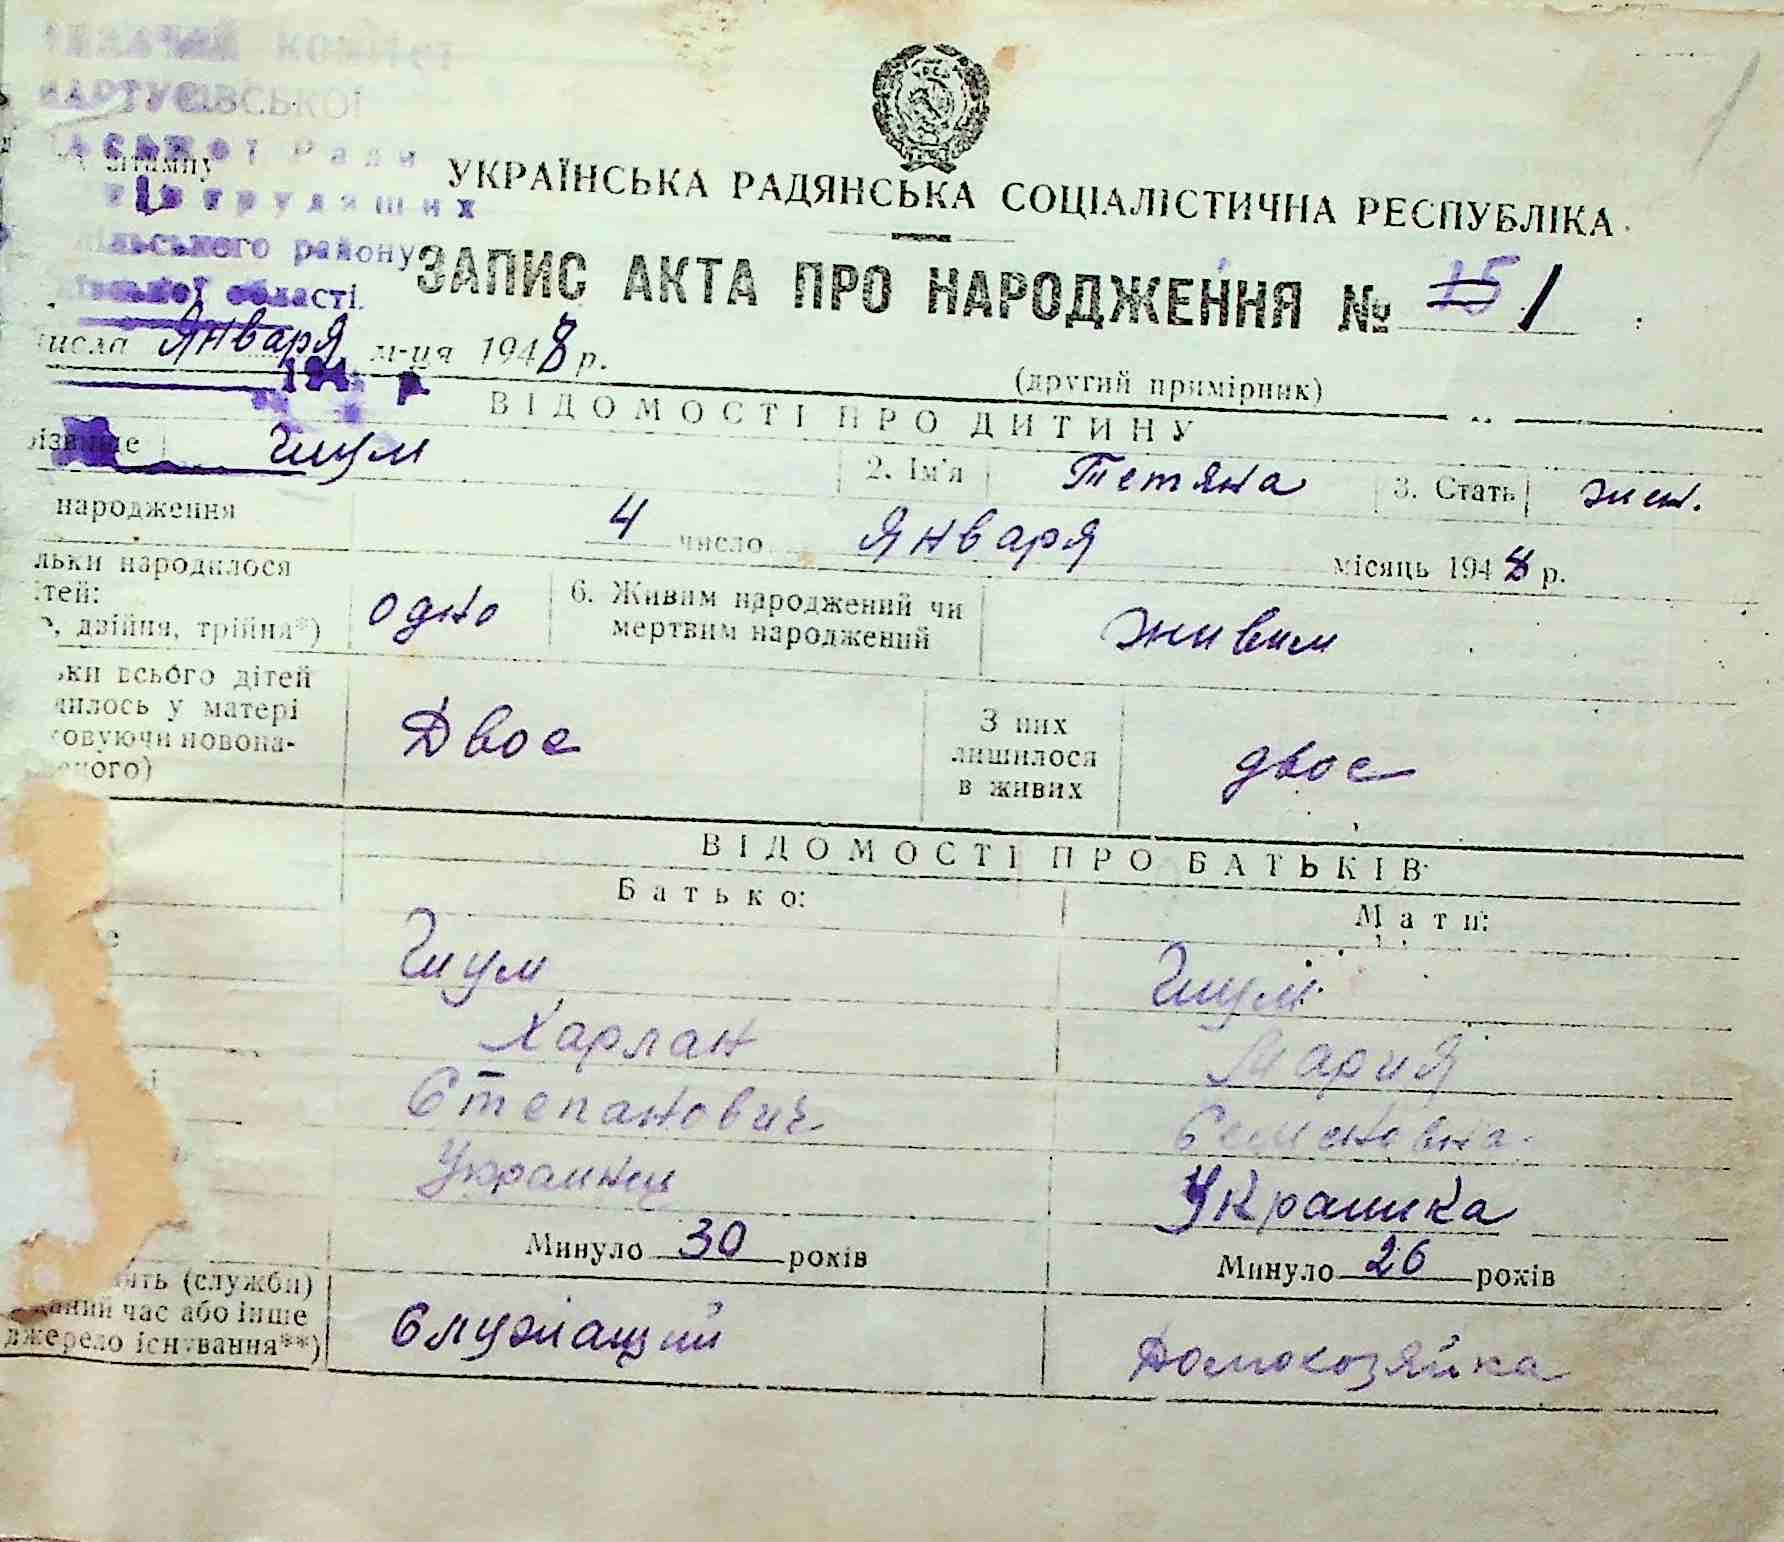 КОМІТЕТ
МАРТУСІВСЬКОЇ
Ради
штампу
трудящих
УКРАЇНСЬКА РАДЯНСЬКА СОЦІАЛІСТИЧНА РЕСПУБЛІКА
ільського району
ЗАПИС АКТА ПРО НАРОДЖЕННЯ № 15 1
області.
числа Января м-ця 1948 р.
194 р.
(другий примірник)
ВІДОМОСТІ ПРО ДИТИНУ
різвище Гшум 2. Ім'я Тетяна 3. Стать жен.
народження 4 число Января місяць 1948 р.
льки народилося
ітей:
о, двійня, трійня*) одно 6. Живим народжений чи
мертвим народжений живим
ьки всього дітей
илось у матері
ховуючи новона-
еного) Двое З них
лишилося
в живих двое
ВІДОМОСТІ ПРО БАТЬКІВ
Батько: Мати:
е Гшум Гшум
Харлан Мария
і Степанович Семеновна
Украинец Украинка
Минуло 30 років Минуло 26 років
ить (служби)
даний час або інше
джерело існування**) Служащий Домохозяйка